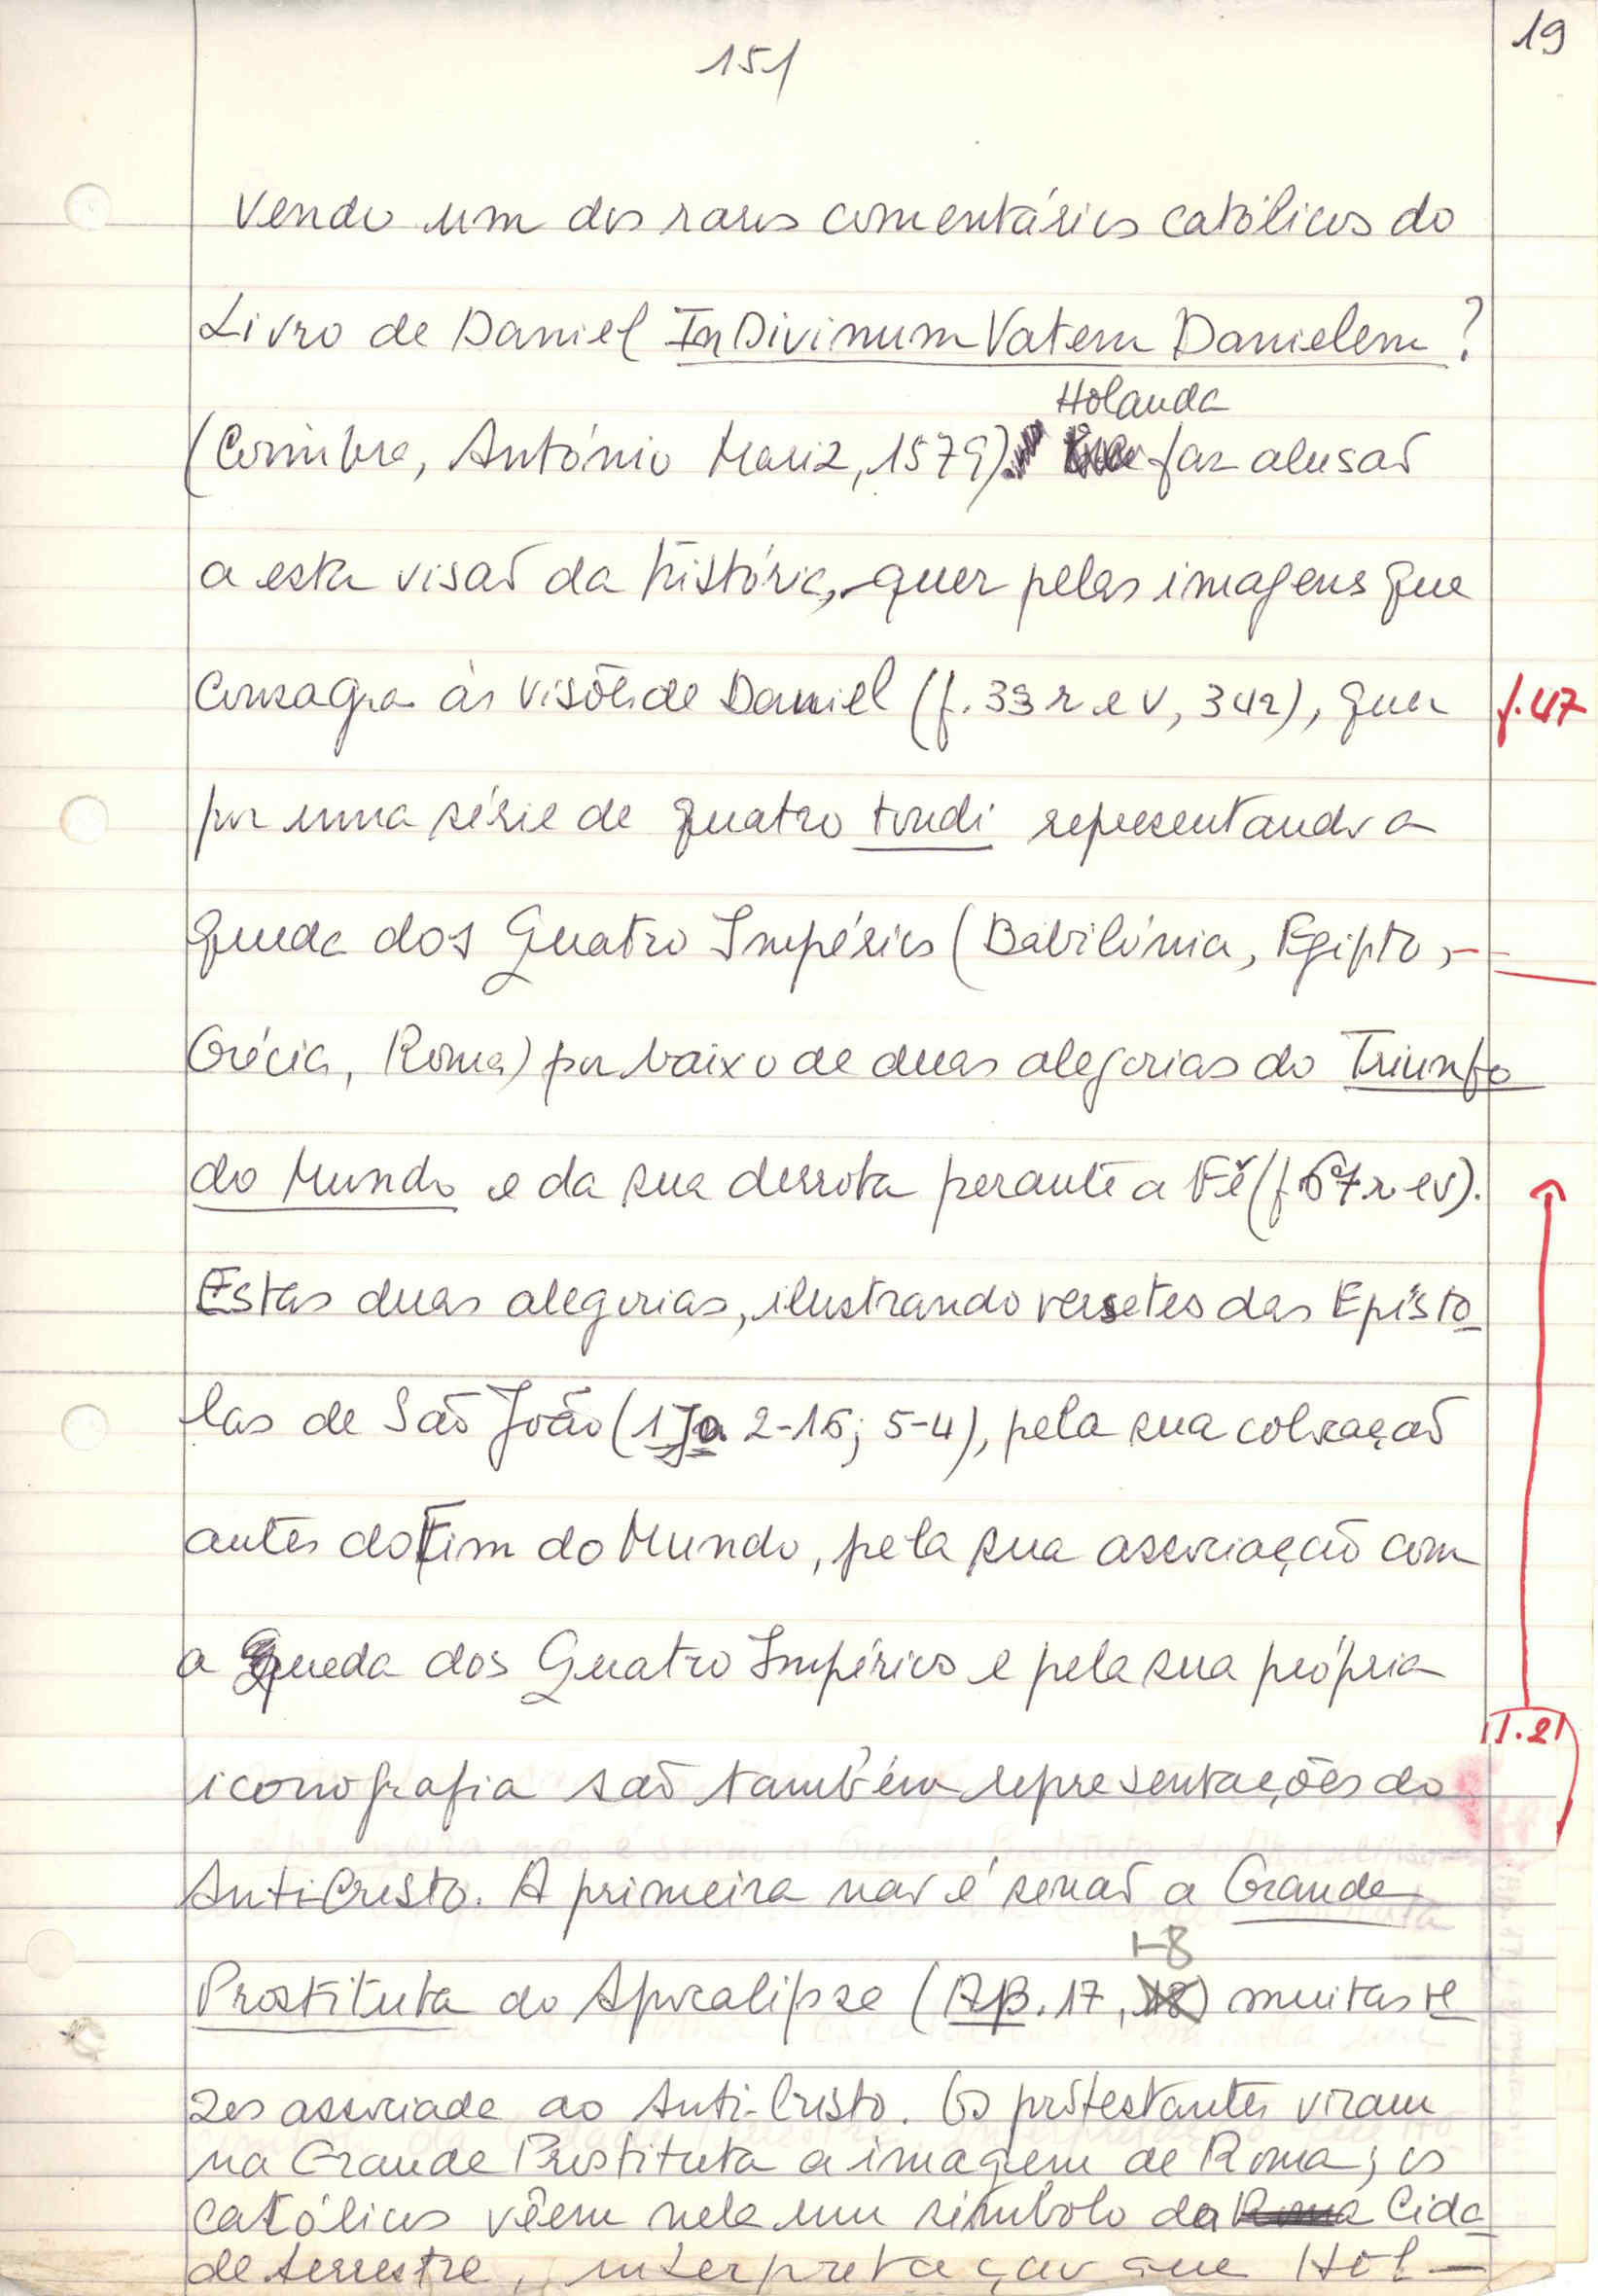 19
151
Vendo um dos raros comentários católicos do
Livro de Daniel In Divinum Vatem Danielem?
Holanda
(Coimbra, António Mariz, 1579). faz alusaõ
a esta visaõ da história, quer pelas imagens que
consagra às visões de Daniel (f. 33 r e v, 34r), quer
f. 47
por uma série de quatro tondi representando a
queda dos Quatro Impérios (Babilónia, Egipto,
Grécia, Roma) por baixo de duas alegorias do Triunfo
do Mundo e da sua derrota perante a Fé (f. 67 r e v).
Estas duas alegorias, ilustrando versetes das Episto
las de São João (1 Jo 2-16; 5-4), pela sua colocaçaõ
antes do Fim do Mundo, pela sua associação com
a Queda dos Quatro Impérios e pela sua própria
iconografia saõ também representações do
AntiCristo. A primeira naõ é senaõ a Grande
1-8
Prostituta do Apocalipse (Ap. 17, 18) muitas ve
zes associada ao Anti-Cristo. Os protestantes viram
na Grande Prostituta a imagem de Roma; os
católicos vêem nela um símbolo da Roma Cida
de terrestre, interpretaçaõ que Hol-